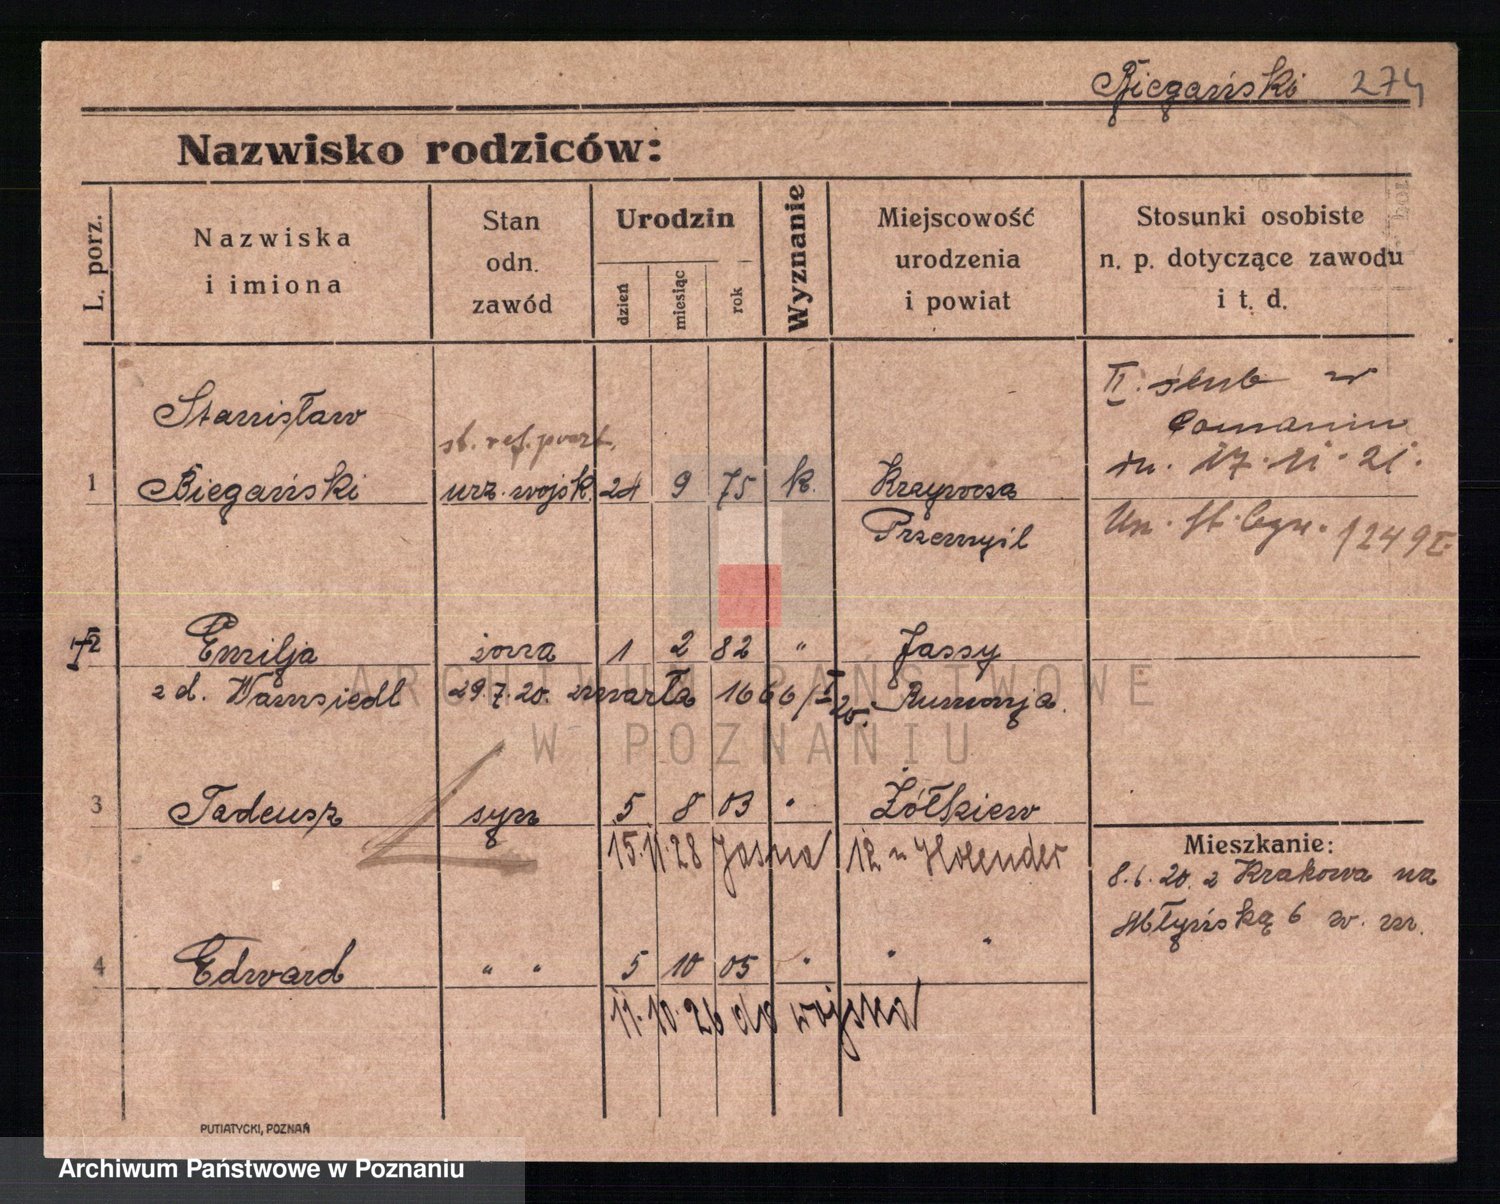 Biegański 274
Nazwisko rodziców:
L. porz.
Nazwiska
i imiona
Stan
odn.
zawód
Urodzin
dzień
miesiąc
rok
Wyznanie
Miejscowość
urodzenia
i powiat
Stosunki osobiste
n. p. dotyczące zawodu
i t. d.
Stanisław
st. ref.
1 Biegański urz. wojsk. 24 9 75 k. Krzywcza
Przemyśl
II. ślub w
Poznaniu
dn. 17.11.21.
1249
2 Emilja żona 1 2 82 " Jassy
z d. 29.7.20. zmarła 1666/I 20. Rumunja.
3 Tadeusz syn 5 8 03 " Żółkiew
15.11.28 Jasna 12 u Hollender
Mieszkanie:
8.6.20. z Krakowa na
Młyńską 6 w. m.
4 Edward " " 5 10 05 " " "
11.10.26 do wojska
PUTIATYCKI, POZNAŃ
ARCHIWUM PAŃSTWOWE
W POZNANIU
Archiwum Państwowe w Poznaniu